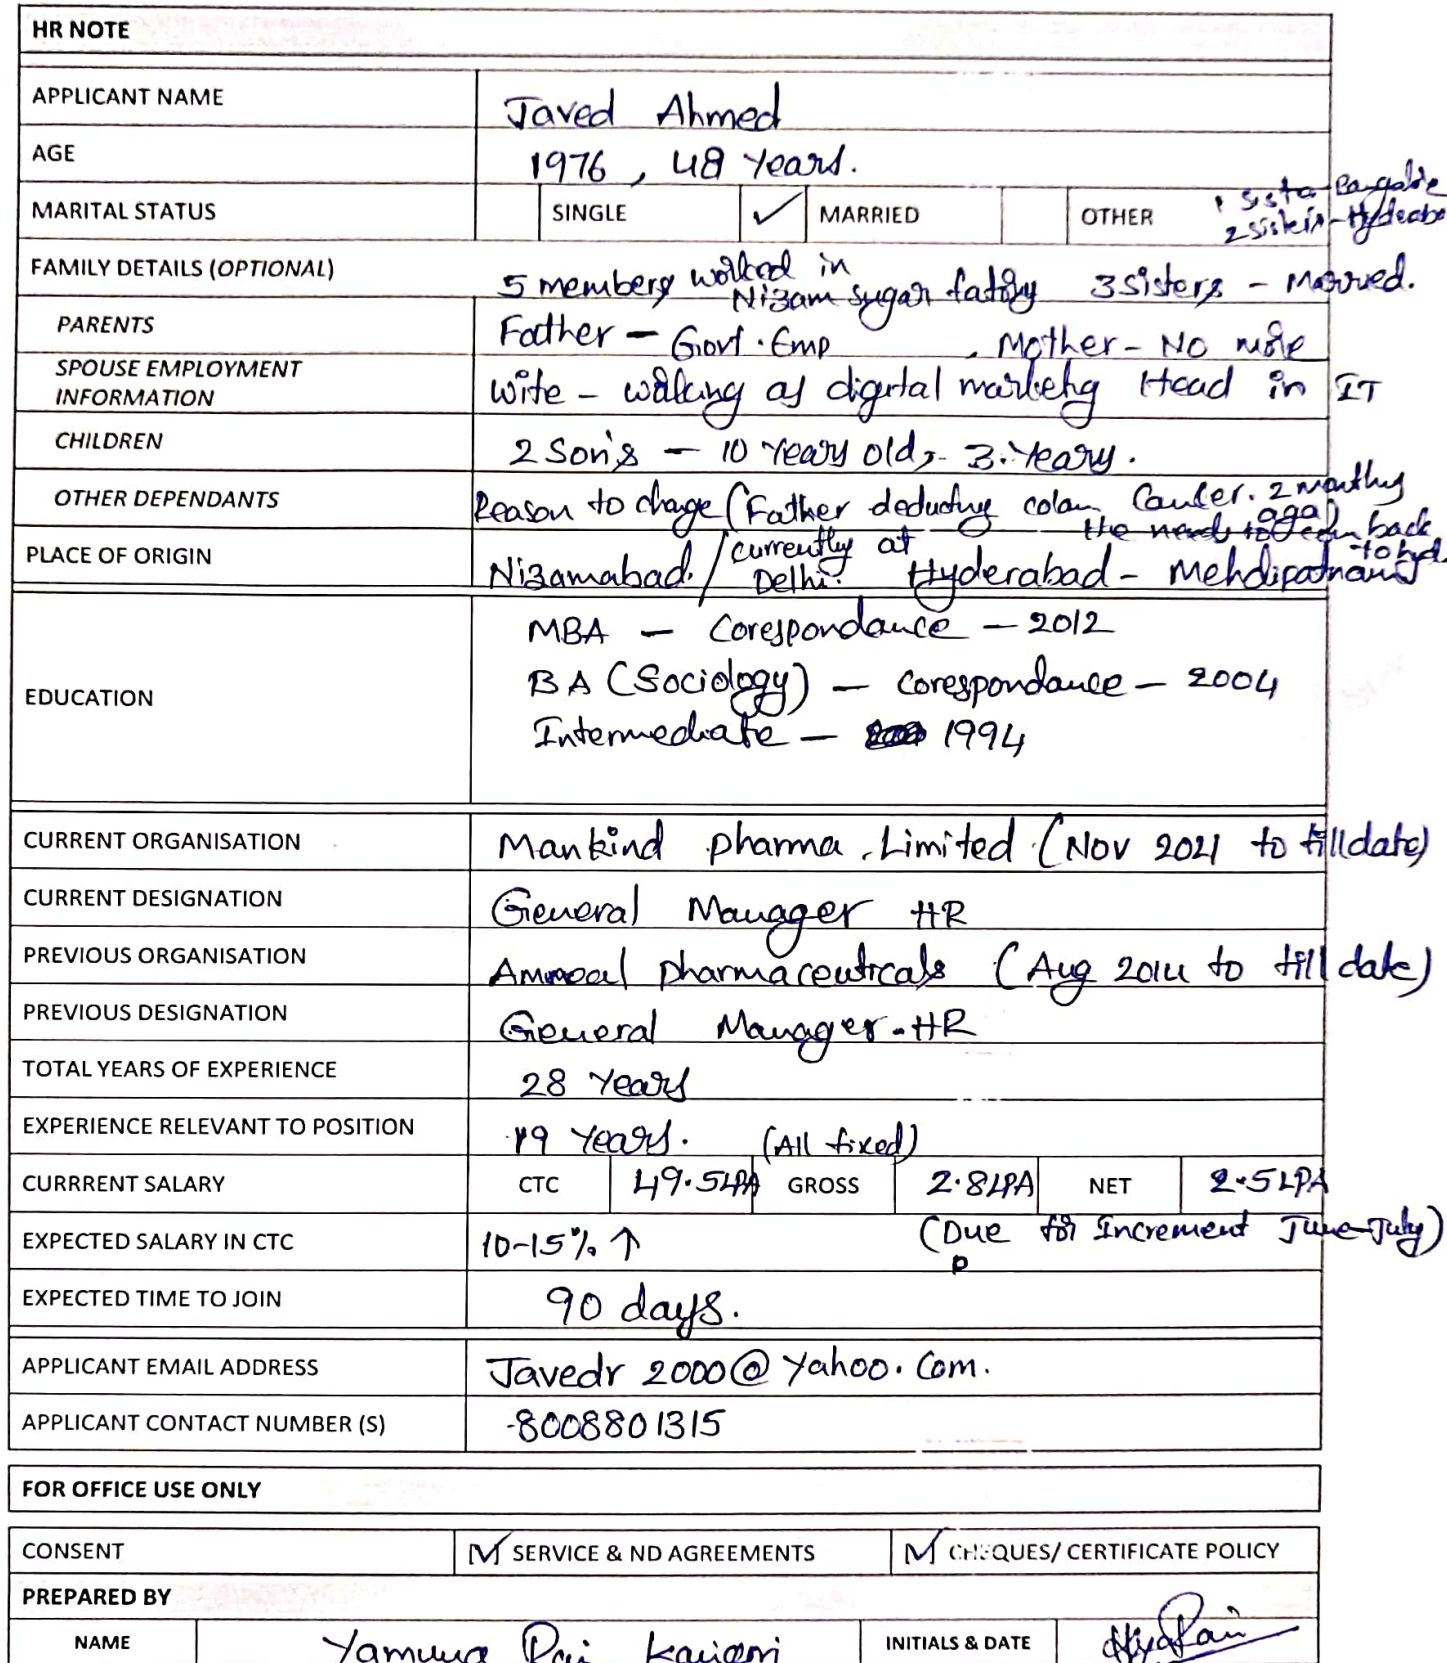 HR NOTE
APPLICANT NAME Javed Ahmed
AGE 1976, 48 Years.
MARITAL STATUS SINGLE ✓ MARRIED OTHER 1 Sister
2 Sisters -
FAMILY DETAILS (OPTIONAL) 5 members worked in Nizam sugar 3 Sisters - Married.
PARENTS Father - Govt. Emp, Mother - No more
SPOUSE EMPLOYMENT INFORMATION Wife - working as digital Head in IT
CHILDREN 2 Son's - 10 Years old, 3 Years.
OTHER DEPENDANTS Reason to change (Father colan Cancer. 2
back to hyd.
PLACE OF ORIGIN Nizamabad. / Currently at Delhi. Hyderabad -
EDUCATION MBA - Corespondance - 2012
BA (Sociology) - Corespondance - 2004
Intermediate - 1994
CURRENT ORGANISATION Mankind pharma Limited (Nov 2021 to till date)
CURRENT DESIGNATION General Manager HR
PREVIOUS ORGANISATION pharmaceuticals (Aug 2014 to till date)
PREVIOUS DESIGNATION General Manager-HR
TOTAL YEARS OF EXPERIENCE 28 Years
EXPERIENCE RELEVANT TO POSITION 19 Years. (All fixed)
CURRRENT SALARY CTC 49.5LPA GROSS 2.8LPA NET 2.5LPA
EXPECTED SALARY IN CTC 10-15% ↑ (Due for Increment June-July)
EXPECTED TIME TO JOIN 90 days.
APPLICANT EMAIL ADDRESS Javedr 2000@Yahoo.Com.
APPLICANT CONTACT NUMBER (S) 8008801315
FOR OFFICE USE ONLY
CONSENT SERVICE & ND AGREEMENTS CHEQUES/ CERTIFICATE POLICY
PREPARED BY
NAME Yamuna INITIALS & DATE